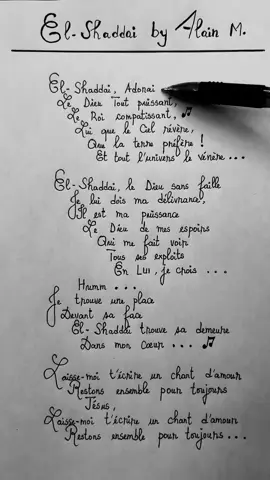 El-Shaddai by Alain M.
El-Shaddai, Adonaï
Le Dieu Tout puissant,
Le Roi compatissant,
Lui que le Ciel révère,
Que la terre préfère !
Et tout l'univers le vénère ...
El-Shaddai, le Dieu sans faille
Je lui dois ma délivrance,
Il est ma puissance
Le Dieu de mes espoirs
Qui me fait voir
Tous ses exploits
En Lui, je crois ...
Hmmm ...
Je trouve une place
Devant sa face
El-Shaddai trouve sa demeure
Dans mon Cœur ...
Laisse-moi t'écrire un chant d'amour
Restons ensemble pour toujours
Jésus,
Laisse-moi t'écrire un chant d'amour
Restons ensemble pour toujours ...